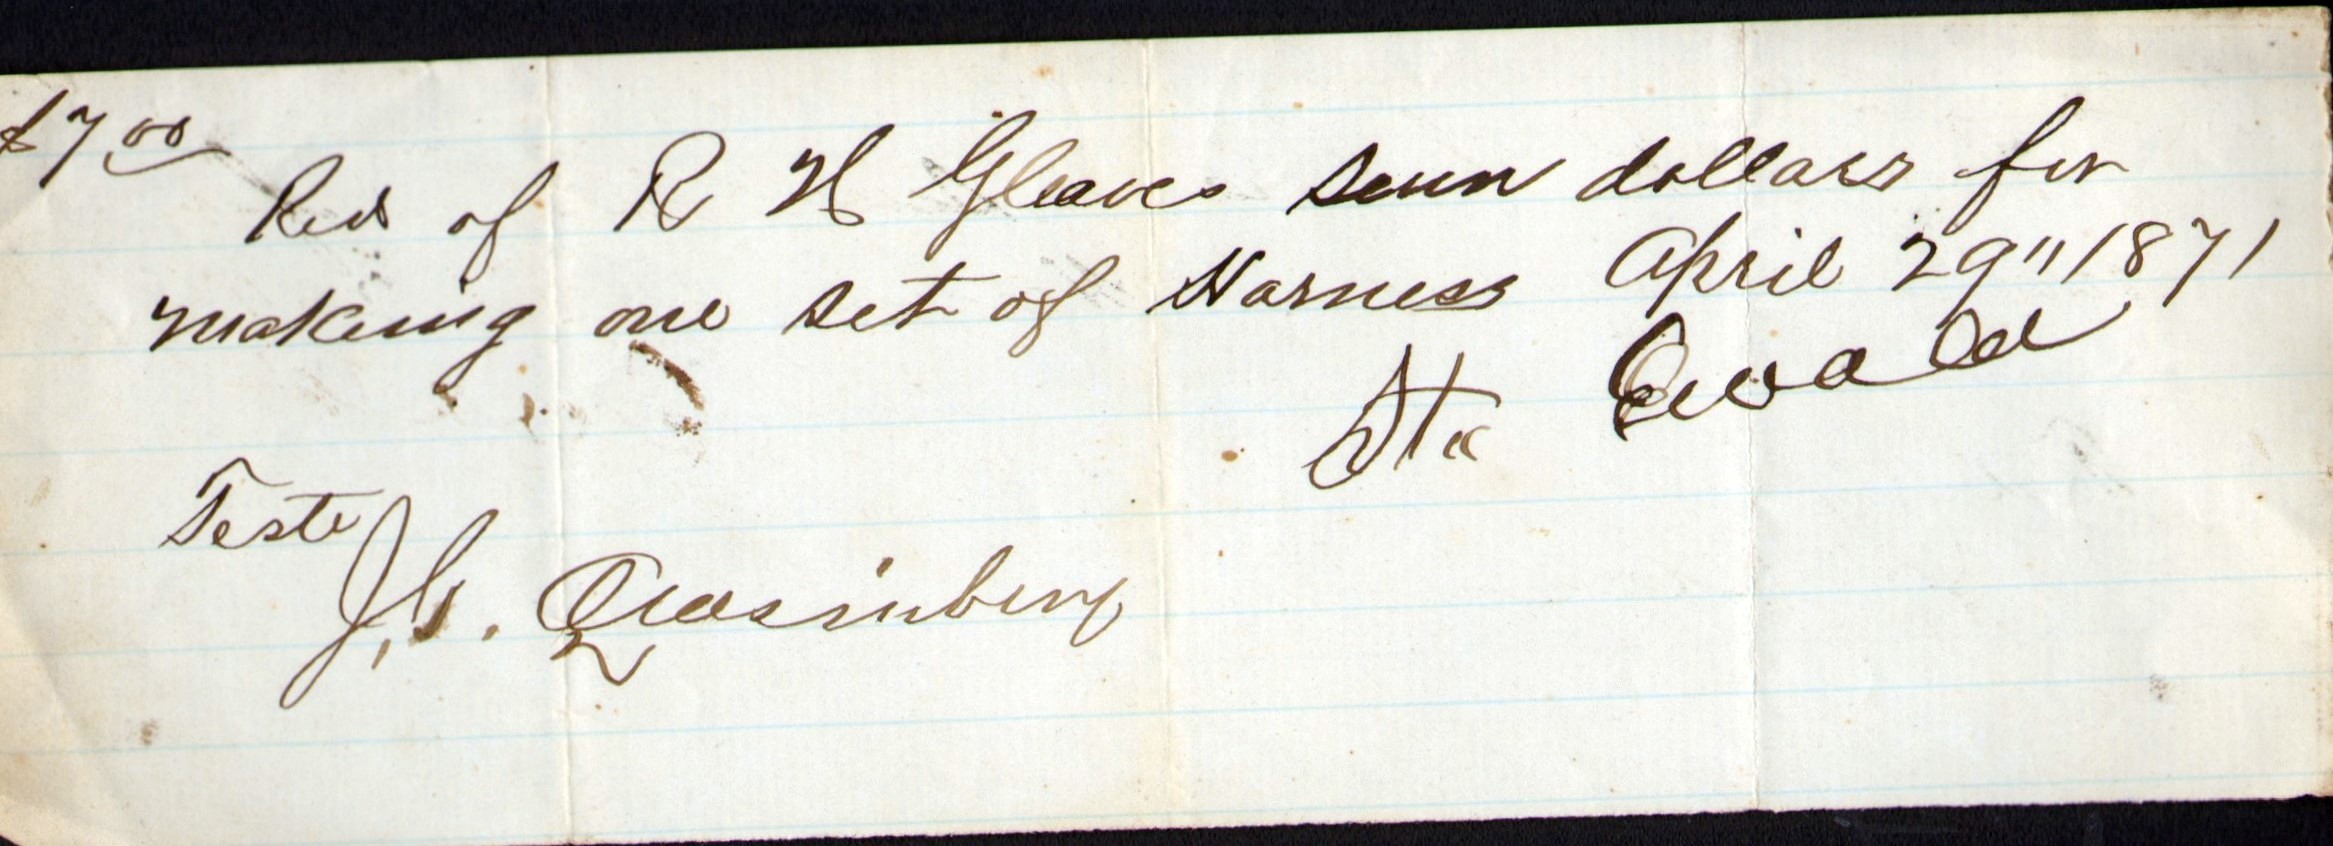 $7.00
Recd of R H Gleaves seven dollars for
making one set of Harness April 29" 1871
Ewald
Teste
J. G.